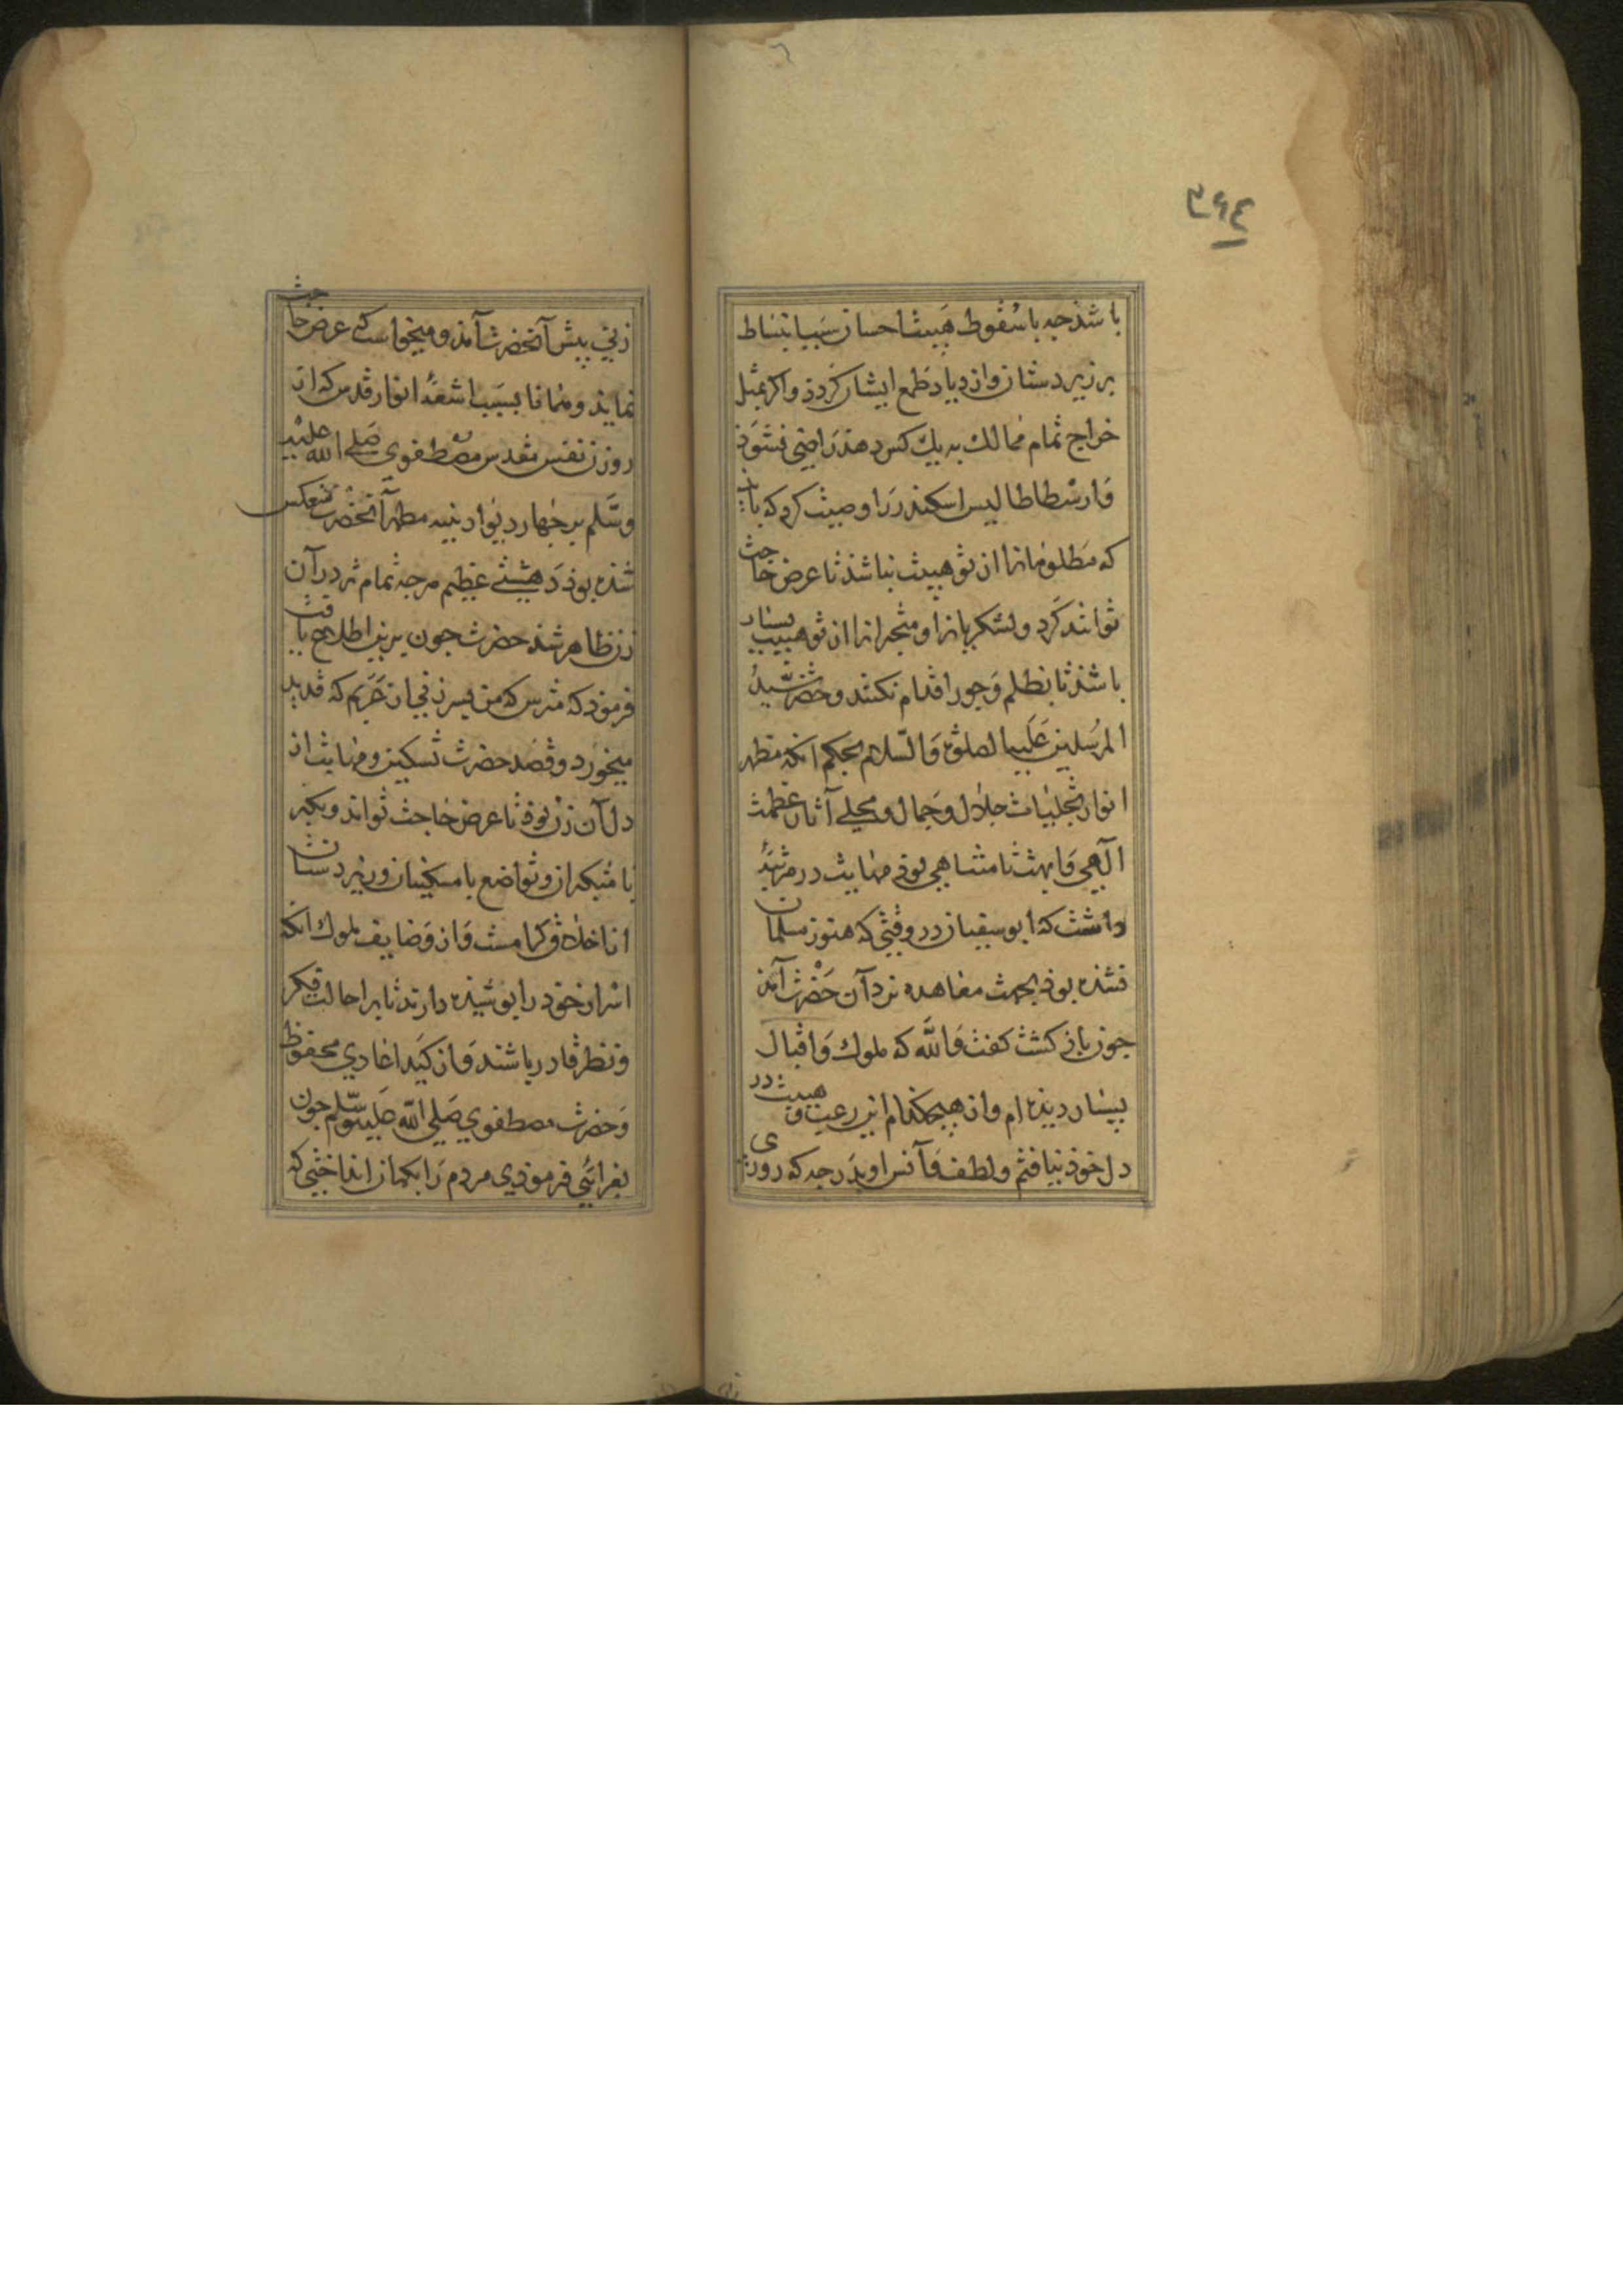 ۳۶۴
باشذ جه باسقوط هیبت احسان سبب انبساط
بر زیردستان وازدیاد طمع ایشان کردذ واکر بمثل
خراج تمام ممالك به یك کس دهذ راضی نشوذ
وارسطاطالیس اسکندر را وصیت کرد که باید
که مظلومانرا از تو هیبت نباشذ تا عرض حاجت
توانند کرد ولشکریانرا ومتجبرانرا از تو هیبت بسیار
باشذ تا بظلم وجور اقدام نکنند وحضرت سید
المرسلین علیه الصلوة والسلام بحکم انکه مظهر
انوار تجلیات جلال وجمال ومجلی آثار عظمت
الهی وابهت نامتناهی بوذ مهابت در مرتبۀ
داشت که ابوسفیان در وقتی که هنوز مسلمان
نشذه بوذ بجهت معاهده نزد آن حضرت آمذ
جون بازکشت کفت والله که ملوك واقیال
بسیار دیذه ام واز هیجکذام این رعب وهیبت در
دل خوذ نیافتم ولطف وآنس او بذرجه که روزی
زنی پیش آنحضرت آمذ ومیخواست که عرض حاجت
نمایذ وهمانا بسبب اشعۀ انوار قدس که از
روزن نفس مقدس مصطفوی صلی الله علیه
وسلم بر جهار دیوار بنیه مطهر آنحضرت منعکس
شذه بوذ دهشتی عظیم هرجه تمام تر در آن
زن ظاهر شذ حضرت جون برین اطلاع یافت
فرموذ که مترس که من پسر زنی ام از عرب که قدید
میخورد وقصد حضرت تسکین مهابت از
دل آن زن بوذ تا عرض حاجت تواند وتکبر
با متکبران وتواضع با مسکینان وزیردستان
از اخلاق کرامست واز وصایف ملوك انکه
اسرار خود را پوشیذه دارند تا بر احالت فکر
ونظر قادر باشند واز کید اعادی محفوظ
وحضرت مصطفوی صلی الله علیه وسلم جون
بغزائی فرموذی مردم را بکمان انداختی که